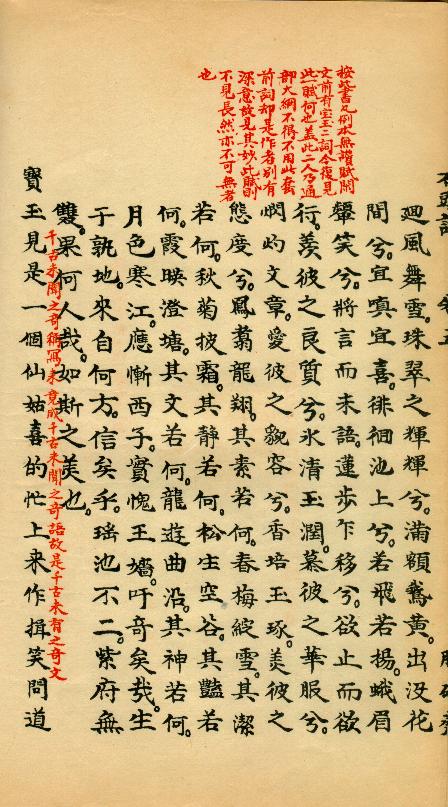 按此書凡例本無讚賦閒
文前有寶玉二詞今復見
此一賦何也蓋此二人乃通
部大綱不得不用此套
前詞却是作者別有
深意故見其妙此賦則
不見長然亦不可無者
也
廻風舞雪。珠翠之輝輝兮。滿額鵞黃。出沒花
間兮。宜嗔宜喜。徘徊池上兮。若飛若揚。蛾眉
顰笑兮。將言而未語。蓮步乍移兮。欲止而欲
行。羨彼之良質兮。氷清玉潤。慕彼之華服兮。
灼文章。愛彼之貌容兮。香培玉琢。美彼之
態度兮。鳳翥龍翔。其素若何。春梅綻雪。其潔
若何。秋菊披霜。其靜若何。松生空谷。其豔若
何。霞映澄塘。其文若何。龍遊曲沼。其神若何。
月色寒江。應慚西子。實愧王嬙。吁奇矣哉。生
于孰地。來自何方。信矣乎。瑤池不二。紫府無
雙。果何人哉。如斯之美也。
千古未聞之奇稱寫來竟成千古未聞之奇語故是千古未有之奇文
寶玉見是一個仙姑喜的忙上來作揖笑問道